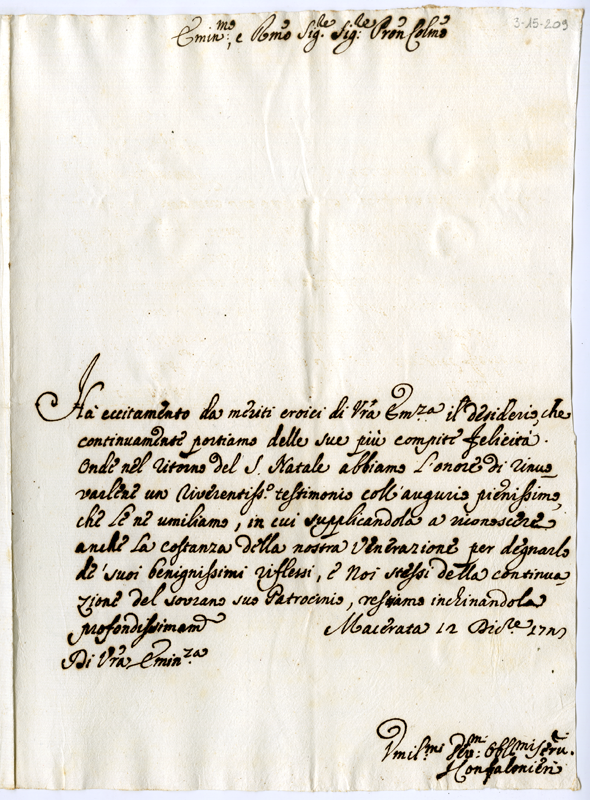 3-15-209
Emin:mo, e Rmo Sig.lle Sig:lle Pron Colmo
Ha eccitamento da meriti eroici di Vrã Emza il desiderio, che
continuamente portiamo delle sue più compite felicità.
Onde nel ritorno del S. Natale abbiamo l'onore di rinuo_
varlene un riverentiss.o testimonio coll'augurio pienissimo,
che le ne umiliamo, in cui supplicandola a riconoscere
anche la costanza della nostra Venerazione per degnarlo
de' suoi benignissimi riflessi, e Noi stessi della continua_
zione del sovrano suo Patrocinio, restiamo inchinandola
profondissimamte Macerata 12 Dicre
Di Vrã Eminza
Vmil:mi Dev:mi Obl:mi Serv.
Confalonieri